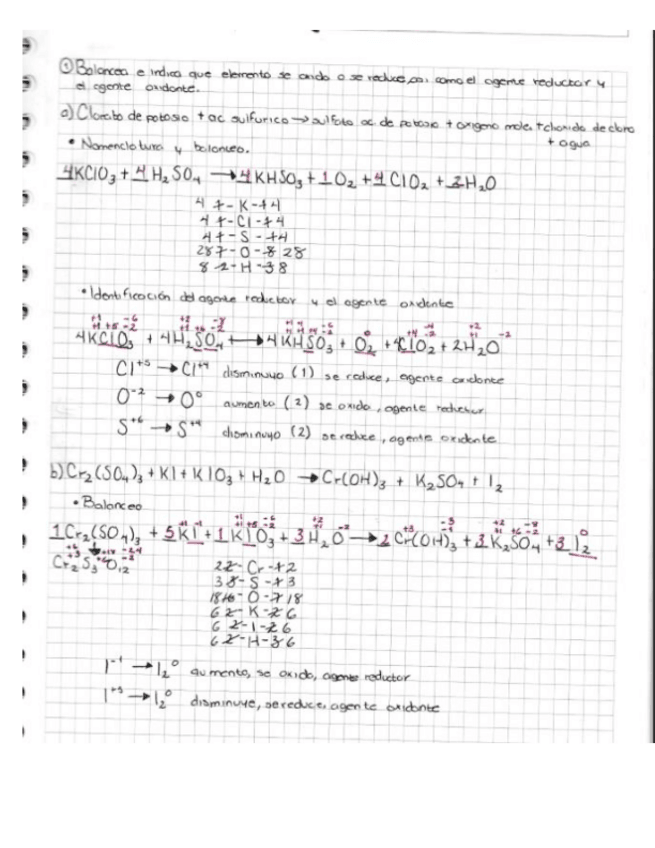 ① Balancea e indica que elemento se oxida o se reduce, así como el agente reductor y
el agente oxidante.
a) Clorato de potasio + ac sulfurico → sulfato ac. de potasio + oxigeno mole. + dioxido de cloro
+ agua
• Nomenclatura y balanceo.
4KClO₃ + 4H₂SO₄ → 4KHSO₃ + 1O₂ + 4ClO₂ + 2H₂O
4 1 - K - 1 4
4 1 - Cl - 1 4
4 1 - S - 1 4
28 7 - O - 8 28
8 2 - H - 3 8
• Identificación del agente reductor y el agente oxidante
+1 +5 -6 +2 +6 -8 +1 +1 +4 -6 +4 -4 +2
+1 +5 -2 +1 +6 -2 +1 +1 +4 -2 0 +4 -2 +1 -2
4KClO₃ + 4H₂SO₄ → 4KHSO₃ + O₂ + 4ClO₂ + 2H₂O
Cl⁺⁵ → Cl⁺⁴ disminuyo (1) se reduce, agente oxidante
O⁻² → O⁰ aumento (2) se oxido, agente reductor
S⁺⁶ → S⁺⁴ disminuyo (2) se reduce, agente oxidente
b) Cr₂(SO₄)₃ + KI + KIO₃ + H₂O → Cr(OH)₃ + K₂SO₄ + I₂
• Balanceo
+1 -1 +1 +5 -6 +2 -2 +3 -3 +2 +6 -8 0
1Cr₂(SO₄)₃ + 5KI + 1KIO₃ + 3H₂O → 2Cr(OH)₃ + 3K₂SO₄ + 3I₂
+6 +18 -24
+3 +6 -2
Cr₂S₃O₁₂
2 2 - Cr - 1 2
3 3 - S - 1 3
18 16 - O - 7 18
6 2 - K - 2 6
6 2 - I - 2 6
6 2 - H - 3 6
I⁻¹ → I₂⁰ aumento, se oxido, agente reductor
I⁺⁵ → I₂⁰ disminuye, se reduce, agente oxidante